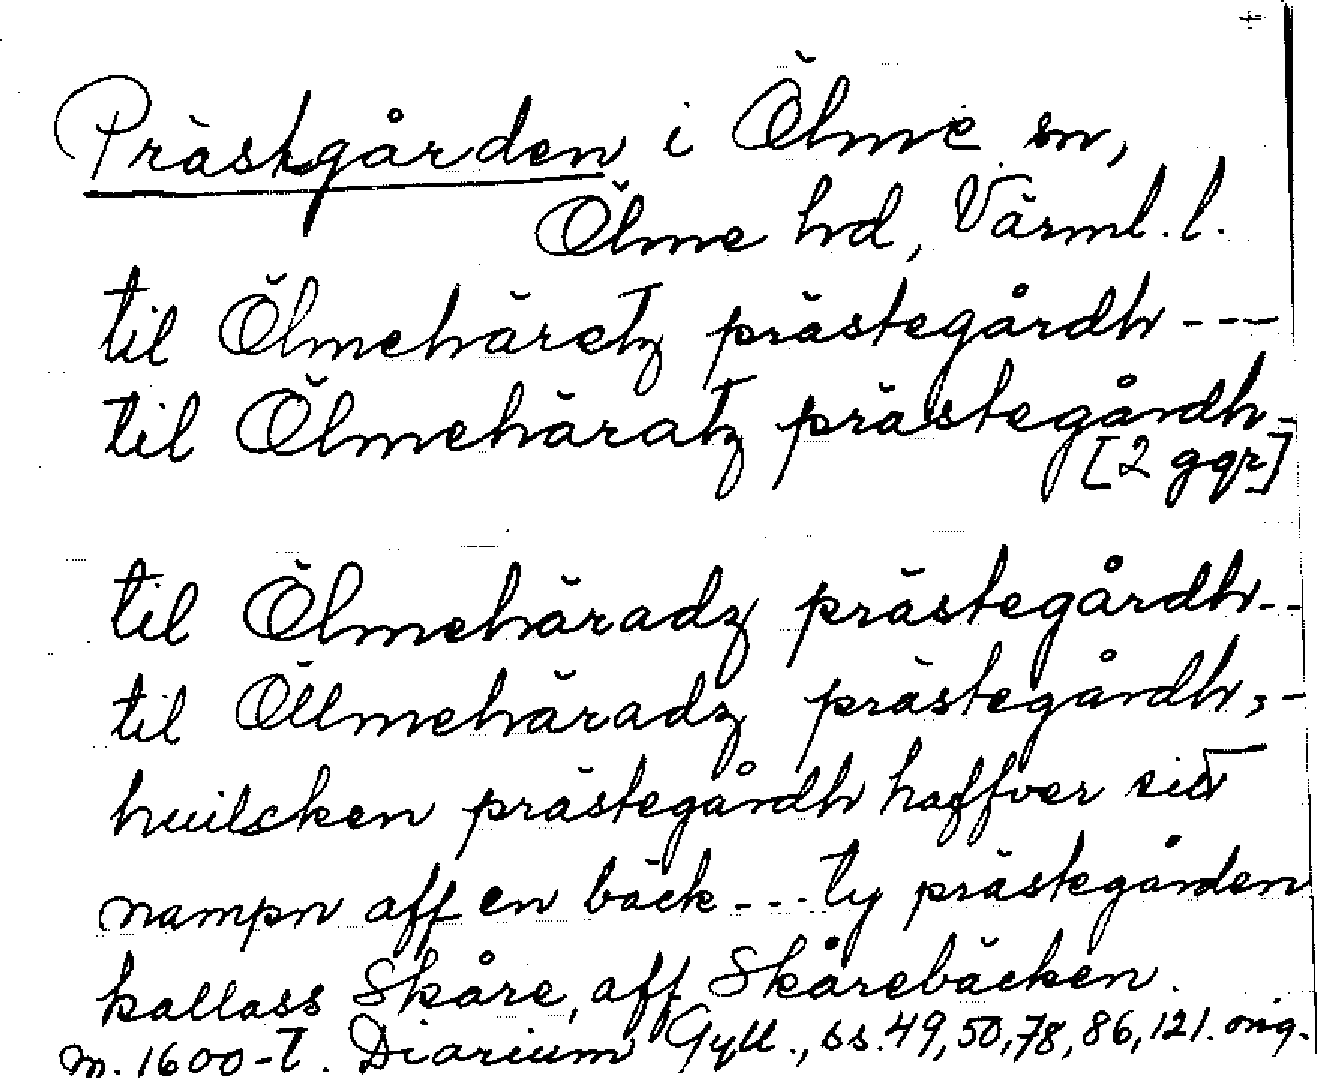 Prästgården i Ölme sn,
Ölme hd, Värml. l.
til Ölmehäretz prästegårdh ---
til Ölmehäratz prästegårdh -
[2 ggr]
til Ölmehäradz prästegårdh --
til Öllmehäradz prästegårdh, -
huilcken prästegårdh haffver sið
nampn aff en bäck --- ty prästegården
kallass Skåre, aff Skårebäcken.
m. 1600-t. Diarium Gyll., ss. 49, 50, 78, 86, 121. orig.